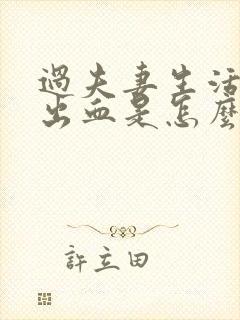 過夫妻生活
出血是怎麼
許立田